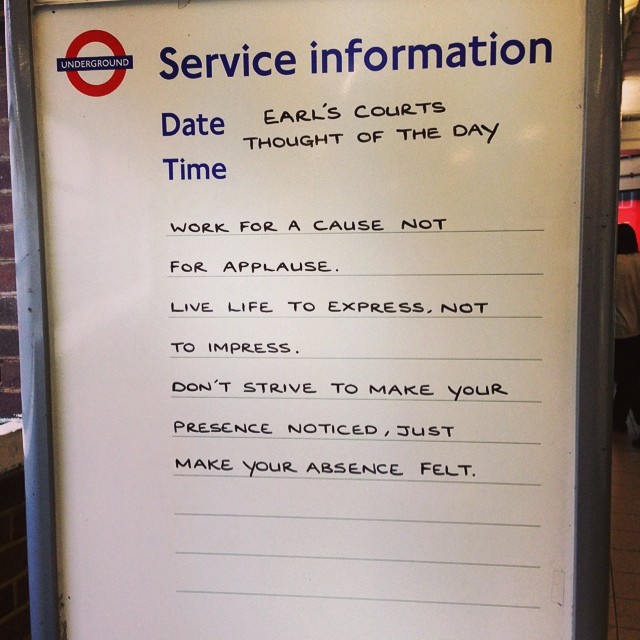 UNDERGROUND
Service information
Date EARL'S COURTS
THOUGHT OF THE DAY
Time
WORK FOR A CAUSE NOT
FOR APPLAUSE.
LIVE LIFE TO EXPRESS, NOT
TO IMPRESS.
DON'T STRIVE TO MAKE YOUR
PRESENCE NOTICED, JUST
MAKE YOUR ABSENCE FELT.